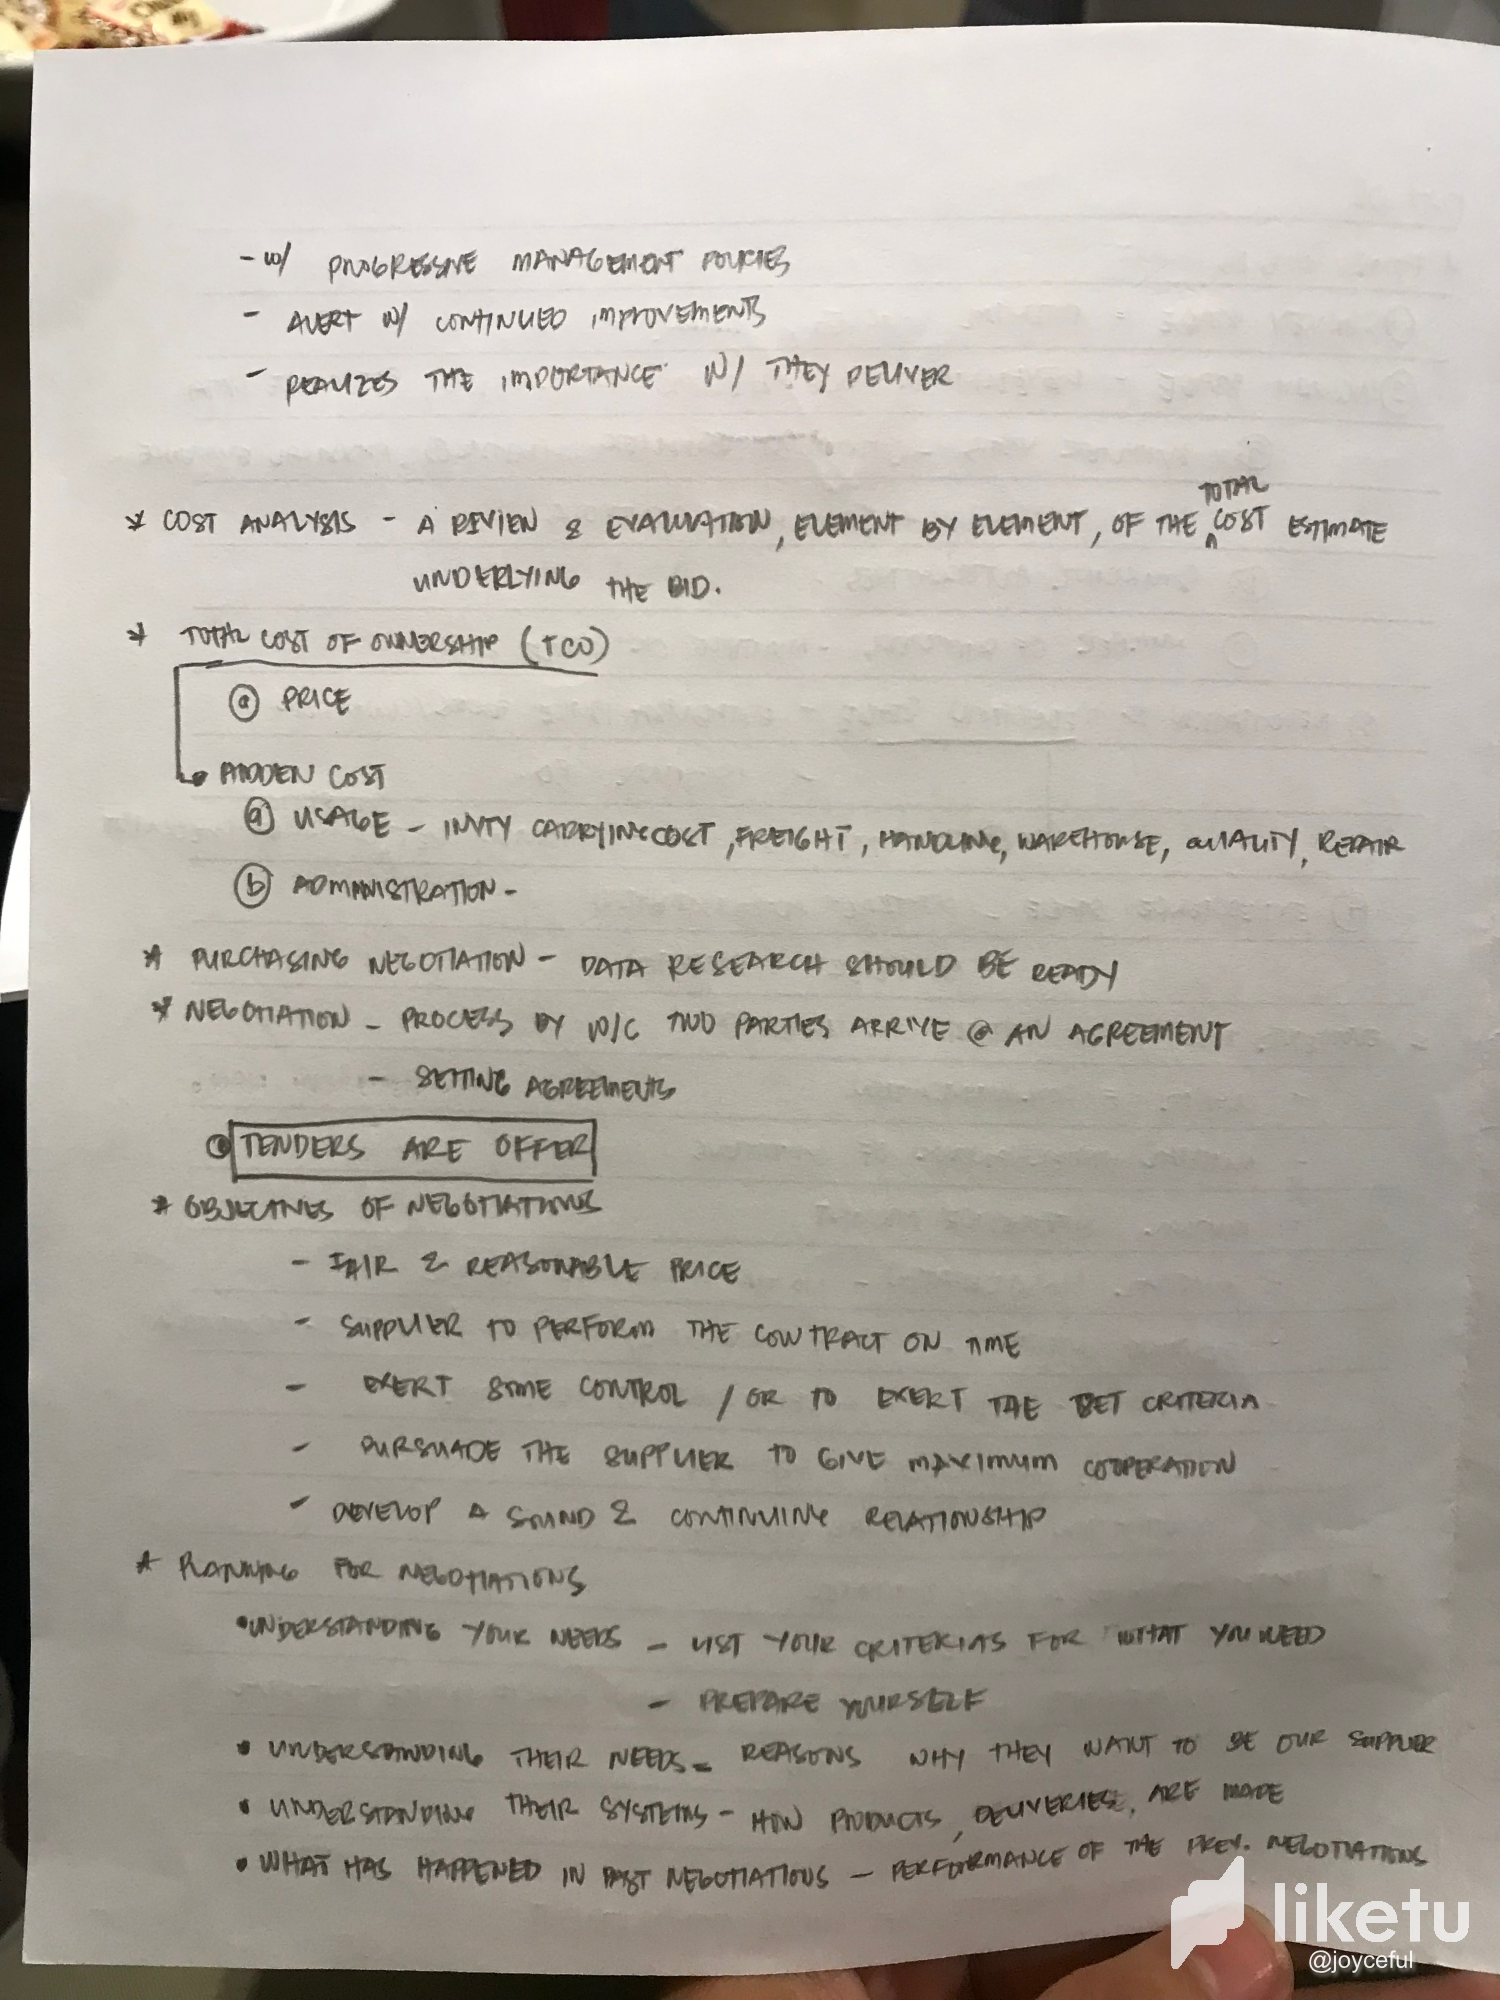 - w/ PROGRESSIVE MANAGEMENT POLICIES
- ALERT W/ CONTINUED IMPROVEMENTS
- REALIZES THE IMPORTANCE W/ THEY DELIVER
* COST ANALYSIS - A REVIEW & EVALUATION, ELEMENT BY ELEMENT, OF THE TOTAL COST ESTIMATE
UNDERLYING THE BID.
* TOTAL COST OF OWNERSHIP (TCO)
ⓐ PRICE
HIDDEN COST
ⓐ USAGE - INVTY CARRYING COST, FREIGHT, HANDLING, WAREHOUSE, QUALITY, REPAIR
ⓑ ADMINISTRATION -
* PURCHASING NEGOTIATION - DATA RESEARCH SHOULD BE READY
* NEGOTIATION - PROCESS BY W/C TWO PARTIES ARRIVE @ AN AGREEMENT
- SETTING AGREEMENTS
TENDERS ARE OFFER
* OBJECTIVES OF NEGOTIATIONS
- FAIR & REASONABLE PRICE
- SUPPLIER TO PERFORM THE CONTRACT ON TIME
- EXERT SOME CONTROL / OR TO EXERT THE CRITERIA
- PURSUADE THE SUPPLIER TO GIVE MAXIMUM COOPERATION
- DEVELOP A SOUND & CONTINUING RELATIONSHIP
* PLANNING FOR NEGOTIATIONS
• UNDERSTANDING YOUR NEEDS - LIST YOUR CRITERIAS FOR WHAT YOU NEED
- PREPARE YOURSELF
• UNDERSTANDING THEIR NEEDS - REASONS WHY THEY WANT TO BE OUR SUPPLIER
• UNDERSTANDING THEIR SYSTEMS - HOW PRODUCTS, DELIVERIES, ARE MADE
• WHAT HAS HAPPENED IN PAST NEGOTIATIONS - PERFORMANCE OF THE PREV. NEGOTIATIONS
liketu
@joyceful